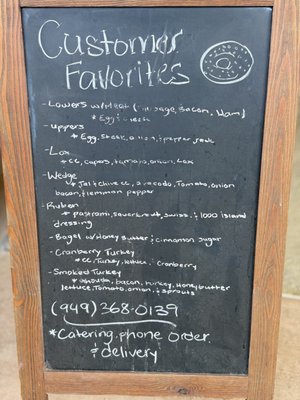 Customer
Favorites
- Lowers w/Meat (Sausage, Bacon, Ham)
* Egg & cheese
- Uppers
* Egg, Steak, onion, & pepper jack
- Lox
* CC, Capers, tomato, onion, Lox
- Wedge
Jal & chive CC, avocado, Tomato, onion
bacon, & lemmon pepper
- Ruben
* pastrami, sauerkraut, swiss, & 1000 island
dressing
- Bagel w/Honey Butter & cinnamon sugar
- Cranberry Turkey
* CC, Turkey, lettuce, Cranberry
- Smoked Turkey
* gouda, bacon, turkey, Honey butter
lettuce, Tomato, onion, & sprouts
(949) 368-0139
* Catering, phone order,
& delivery